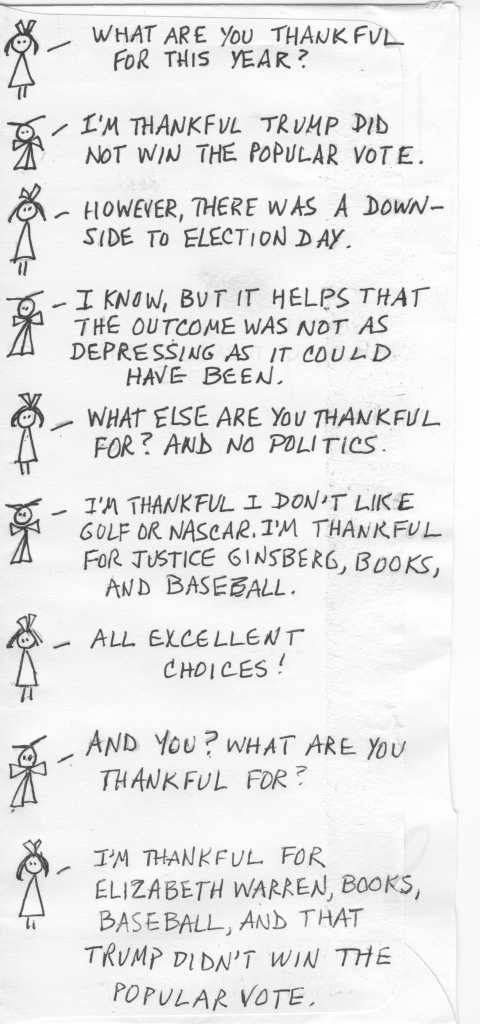 WHAT ARE YOU THANKFUL
FOR THIS YEAR?
I'M THANKFUL TRUMP DID
NOT WIN THE POPULAR VOTE.
HOWEVER, THERE WAS A DOWN-
SIDE TO ELECTION DAY.
I KNOW, BUT IT HELPS THAT
THE OUTCOME WAS NOT AS
DEPRESSING AS IT COULD
HAVE BEEN.
WHAT ELSE ARE YOU THANKFUL
FOR? AND NO POLITICS.
I'M THANKFUL I DON'T LIKE
GOLF OR NASCAR. I'M THANKFUL
FOR JUSTICE GINSBERG, BOOKS,
AND BASEBALL.
ALL EXCELLENT
CHOICES!
AND YOU? WHAT ARE YOU
THANKFUL FOR?
I'M THANKFUL FOR
ELIZABETH WARREN, BOOKS,
BASEBALL, AND THAT
TRUMP DIDN'T WIN THE
POPULAR VOTE.